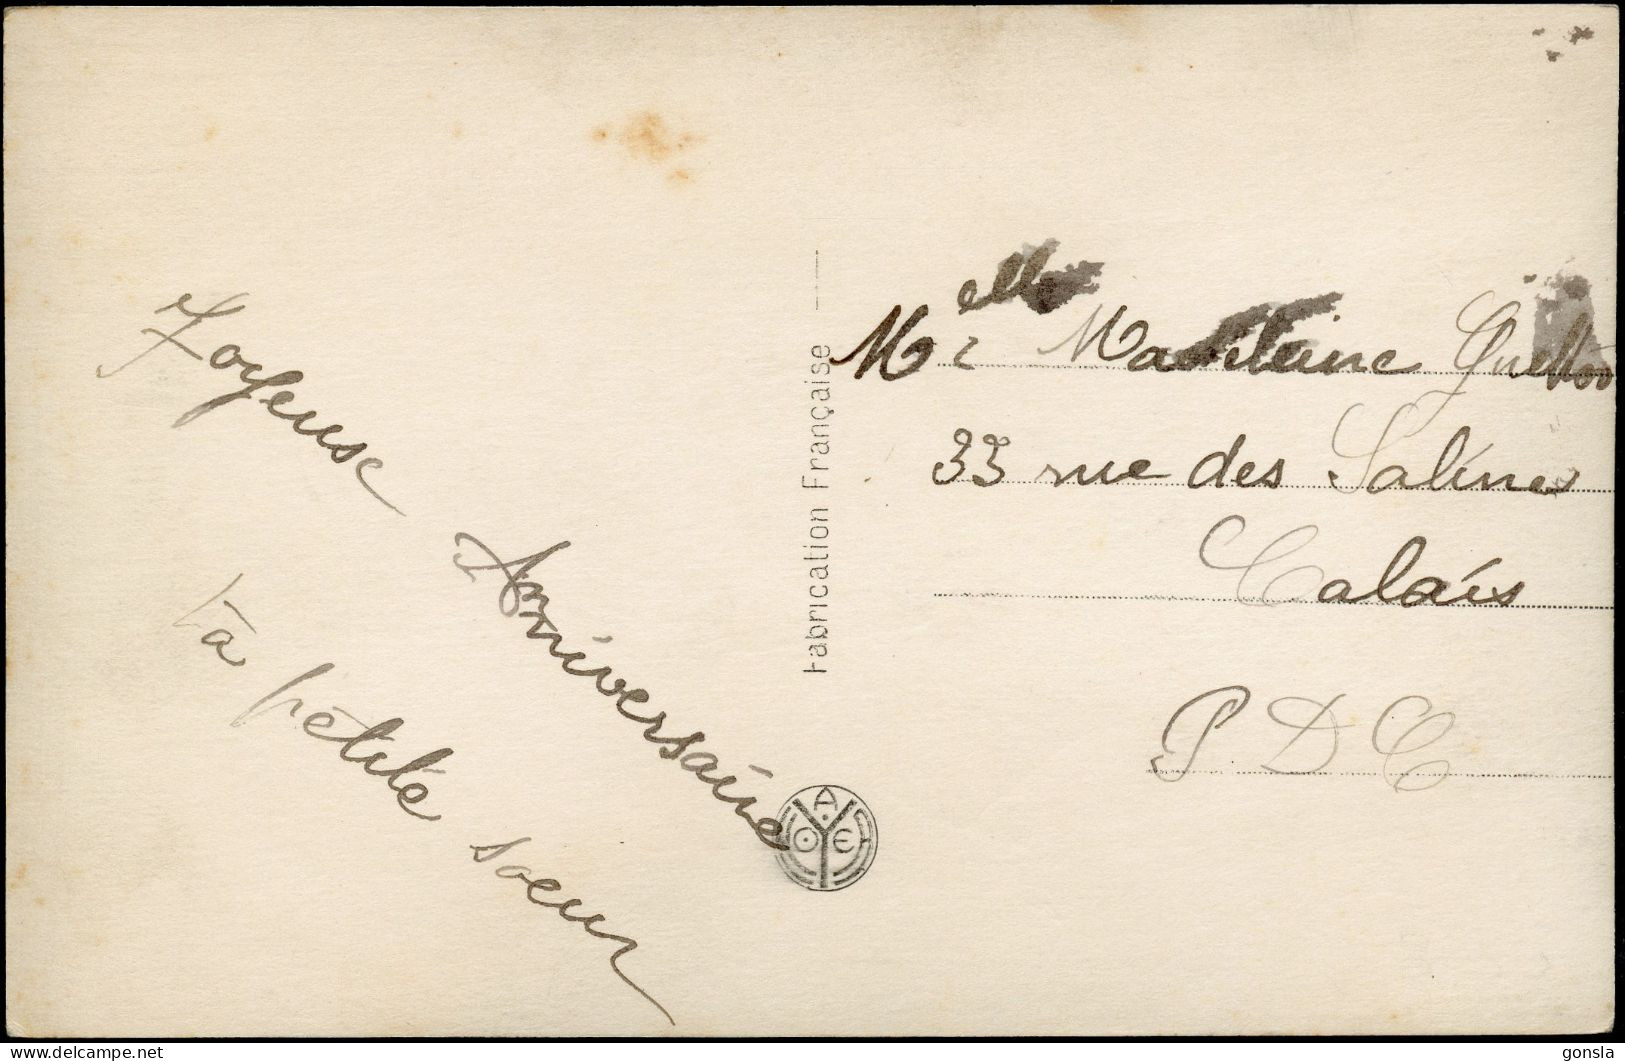 Joyeuse Anniversaire
ta petite soeur
Fabrication Française
A
O E
Melle Madeleine
33 rue des Salines
Calais
P D C
delcampe.net
gonsla